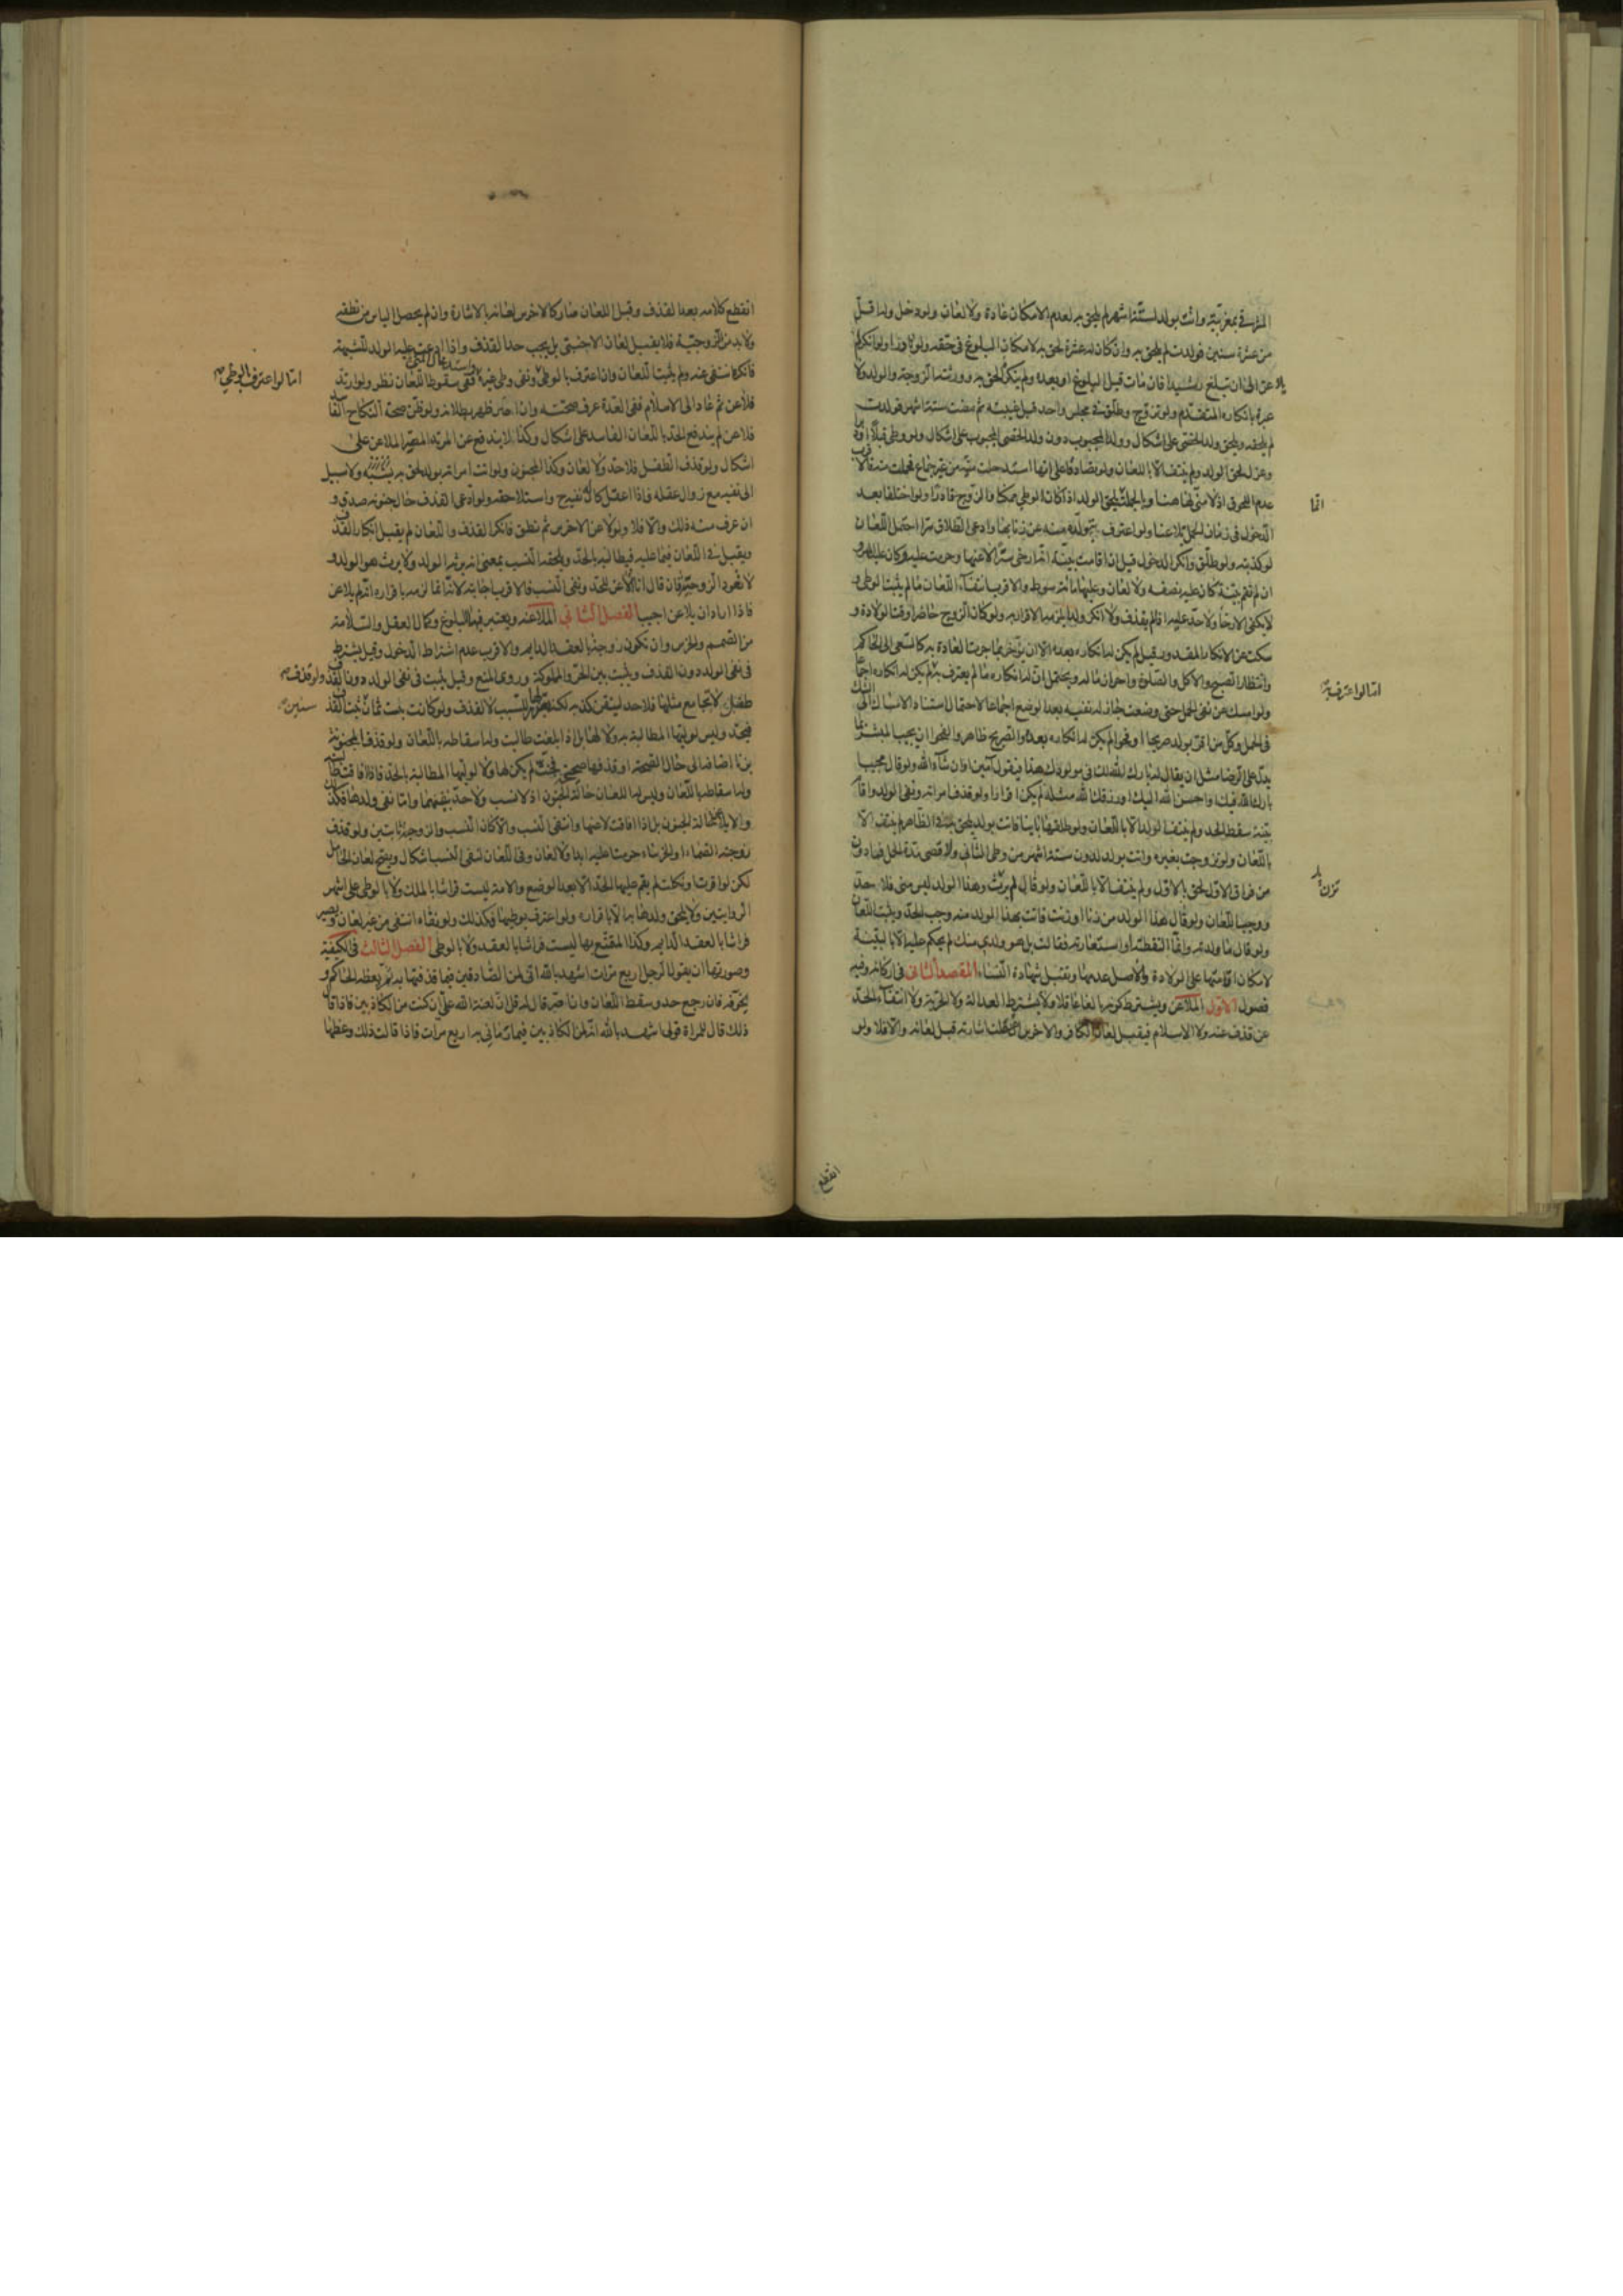 المشرقي بمغربية واتت بولد لستة اشهر لم يلحق به لعدم الامكان عادة ولا لعان ولو دخل وله اقل
من عشرة سنين فولدت لم يلحق به وان كان له عشرة لحق به لامكان البلوغ في حقه ولو نادرا ولو انكر لم
يلاعن الى ان يبلغ رشيدا فان مات قبل البلوغ او بعده ولم ينكره لحق به وورثته الزوجة والولد ولا
عبرة بانكاره المتقدم ولو تزوج وطلق في مجلس واحد قبل غيبته ثم مضت ستة اشهر فولدت
لم يلحقه ويلحق ولد الخصي على اشكال وولد المجبوب دون ولد الخصي المجبوب على اشكال ولو وطئ قبلا او دبرا
وعزل لحق الولد ولم ينتف الا باللعان ولو تصادقا على انها استدخلت منيه من غير جماع فحملت منه فالاقرب
عدم اللحوق اذ لا مني لها هنا وبالجملة يلحق الولد اذا كان الوطي ممكنا والزوج قادرا ولو اختلفا بعد
الدخول في زمان الحمل تلاعنا ولو اعترف بتولده منه عن زنا بها وادعى الطلاق سرا احتمل اللعان
لو كذبته ولو طلق وانكر الدخول قيل ان اقامت بينة انه ارخى سترا لاعنها وحرمت عليه وكان عليه المهر و
ان لم تقم بينة كان عليه نصفه ولا لعان وعليها مائة سوط والاقرب انتفاء اللعان ما لم يثبت الوطي و
لا يكفي الارخاء ولا حد عليه اذا لم يقذف ولا انكر ولدا يلزمه الاقرار به ولو كان الزوج حاضرا وقت الولادة و
سكت عن الانكار المقدور قيل لم يكن له انكاره بعده الا ان يؤخر بما جرت العادة به كالسعي الى الحاكم
وانتظار الصبح والاكل والصلوة واحراز ماله ويحتمل ان له انكاره ما لم يعترف به
اما لو اعترف به
لم يكن له انكاره اجماعا
ولو امسك عن نفي الحمل حتى وضعت جاز له نفيه بعد الوضع اجماعا لاحتمال استناد الامساك الى الشك
في الحمل وكل من اقر بولد صريحا او فحوى لم يكن له انكاره بعده والصريح ظاهر والفحوى ان يجيب المبشر بما
يدل على الرضا مثل ان يقال له بارك الله لك في مولودك هذا فيقول آمين او ان شاء الله ولو قال مجيبا
بارك الله فيك او احسن الله اليك او رزقك الله مثله لم يكن اقرارا ولو قذف امراته ونفى الولد واقام
بينة سقط الحد ولم ينتف الولد الا باللعان ولو طلقها بائنا فاتت بولد يلحق به في الظاهر لم ينتف الا
باللعان ولو تزوجت بغيره واتت بولد لدون ستة اشهر من وطي الثاني ولاقصى مدة الحمل فما دون
من فراق الاول لحق بالاول ولم ينتف الا باللعان ولو قال لم تزن وهذا الولد ليس مني فلا حد
ووجب اللعان ولو قال هذا الولد من زنا او زنت فاتت بهذا الولد منه وجب الحد ويثبت اللعان
ولو قال ما ولدته وانما التقطته او استعارته فقالت بل هو ولدي منك لم يحكم عليه الا بالبينة
لامكان اقامتها على الولادة والاصل عدمها وتقبل شهادة النساء المقصد الثاني في اركانه وفيه
فصول الاول الملاعن ويشترط كونه بالغا عاقلا ولا يشترط العدالة ولا الحرية ولا انتفاء الحد
عن قذف عنه ولا الاسلام فيقبل لعان الكافر والاخرس ان عقلت اشارته قبل لعانه والا فلا ولو
انقطع
انقطع كلامه بعد القذف وقبل اللعان صار كالاخرس لعانه بالاشارة وان لم يحصل الياس من نطقه
ولا بد من الزوجية فلا يقبل لعان الاجنبي بل يجب حد القذف واذا ادعت عليه الولد للشبهة
فانكره انتفى عنه ولم يثبت اللعان وان اعترف بالوطي ونفى وطي غيره
اما لو اعترف بالوطي
ففي سقوط اللعان نظر ولو ارتد
فلاعن ثم عاد الى الاسلام ففي العدة عرف صحته وان اصر ظهر بطلانه ولو ظن صحة النكاح الفاسد
فلاعن لم يندفع الحد باللعان الفاسد على اشكال وكذا لا يندفع عن المرتد المصر الملاعن على
اشكال ولو قذف الطفل فلا حد ولا لعان وكذا المجنون ولو اتت امراته بولد لحق به نسبه ولا سبيل
الى نفيه مع زوال عقله فاذا عقل كان له نفيه واستلحاقه ولو ادعى القذف حال جنونه صدق و
ان عرف منه ذلك والا فلا ولو لاعن الاخرس ثم نطق فانكر القذف واللعان لم يقبل انكار القذف
ويقبل في اللعان فيما عليه فيطالب بالحد ويلحقه النسب بمعنى انه يرثه الولد ولا يرث هو الولد و
لا تعود الزوجية فان قال انا الاعن للحد ونفي النسب فالاقرب اجابته لانا انما الزمناه باقراره انه لم يلاعن
فاذا اراد ان يلاعن اجيب الفصل الثاني الملاعنة ويعتبر فيها البلوغ وكمال العقل والسلامة
من الصمم والخرس وان تكون زوجة بالعقد الدايم والاقرب عدم اشتراط الدخول وقيل يشترط
في نفي الولد دون القذف ويثبت بين الحر والمملوكة وروى المنع وقيل يثبت في نفي الولد دون القذف ولو قذف
طفلة لا تجامع مثلها فلا حد لتيقن كذبه لكنه يعزر للسب لا للقذف ولو كانت بنت ثمان سنين ثبت القذف
فيحد وليس لوليها المطالبة به ولا لها بل اذا بلغت طالبت وله اسقاطه باللعان ولو قذف المجنونة
بزنا اضافه الى حال الصحة او قذفها صحيحة فجنت لم يكن لها ولا لوليها المطالبة بالحد فاذا افاقت طالبت به
وله اسقاطه باللعان وليس له اللعان حالة الجنون اذ لا نسب ولا حد ينفيهما واما نفي ولدها فكذلك
والا يلاعنها حالة الجنون بل اذا افاقت لاعنها وانتفى النسب والا كان النسب والزوجية ثابتين ولو قذف
زوجته الصماء او الخرساء حرمت عليه ابدا ولا لعان وفي اللعان لنفي النسب اشكال ويصح لعان الحامل
لكن لو اقرت او نكلت لم يقم عليها الحد الا بعد الوضع والامة ليست فراشا بالملك ولا بالوطي على اشهر
الروايتين ولا يلحق ولدها به الا باقراره ولو اعترف بوطيها فكذلك ولو نفاه انتفى من غير لعان وتصير
فراشا بالعقد الدايم وكذا المتمتع بها ليست فراشا بالعقد ولا بالوطي الفصل الثالث في الكيفية
وصورتها ان يقول الرجل اربع مرات اشهد بالله اني لمن الصادقين فيما قذفتها به ثم يعظه الحاكم و
يخوفه فان رجع حد وسقط اللعان وان اصر قال له قل ان لعنة الله علي ان كنت من الكاذبين فاذا قال
ذلك قال للمراة قولي اشهد بالله انه لمن الكاذبين فيما رماني به اربع مرات فاذا قالت ذلك وعظها